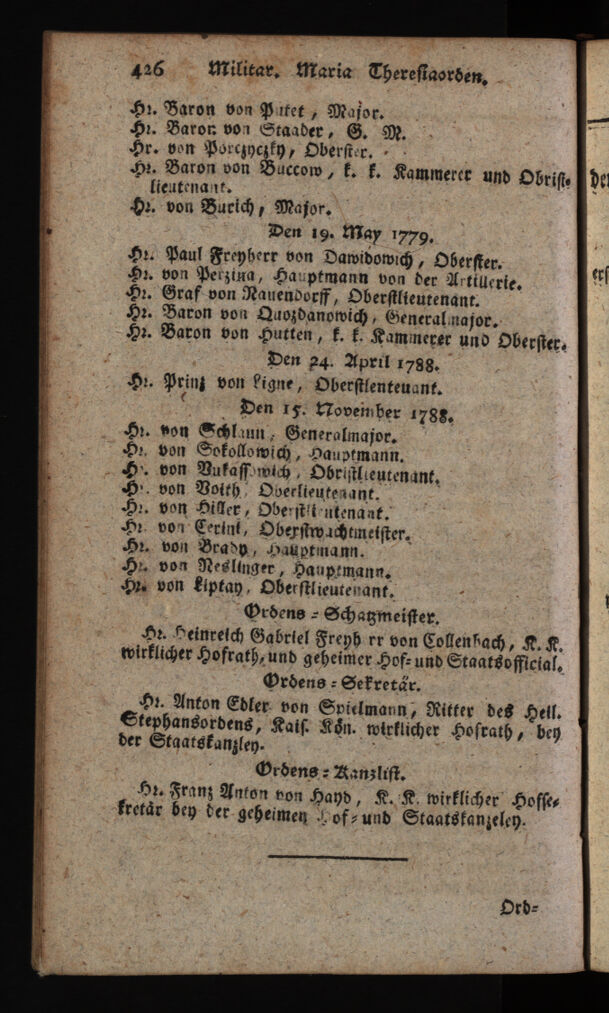 426 Militar. Maria Theresiaorden.
Hr. Baron von Putet, Major.
Hr. Baron von Staader, G. M.
Hr. von Porczyczky, Oberster.
Hr. Baron von Buccow, k. k. Kammerer und Obrist-
lieutenant.
Hr. von Burich, Major.
Den 19. May 1779.
Hr. Paul Freyherr von Dawidowich, Oberster.
Hr. von Perzina, Hauptmann von der Artillerie.
Hr. Graf von Nauendorff, Oberstlieutenant.
Hr. Baron von Quozdanowich, Generalmajor.
Hr. Baron von Hutten, k. k. Kammerer und Oberster.
Den 24. April 1788.
Hr. Prinz von Ligne, Oberstlenteuant.
Den 15. November 1788.
Hr. von Schlaun, Generalmajor.
Hr. von Sokollowich, Hauptmann.
Hr. von Vukassowich, Obristlieutenant.
Hr. von Voith, Oberlieutenant.
Hr. von Hiller, Oberstlieutenant.
Hr. von Cerini, Oberstwachtmeister.
Hr. von Brady, Hauptmann.
Hr. von Neslinger, Hauptmann.
Hr. von Liptay, Oberstlieutenant.
Ordens-Schatzmeister.
Hr. Heinreich Gabriel Freyh rr von Collenbach, K. K.
wirklicher Hofrath, und geheimer Hof- und Staatsofficial.
Ordens-Sekretär.
Hr. Anton Edler von Spielmann, Ritter des Heil.
Stephansordens, Kais. Kön. wirklicher Hofrath, bey
der Staatskanzley.
Ordens-Kanzlist.
Hr. Franz Anton von Hayd, K. K. wirklicher Hofse-
kretär bey der geheimen Hof- und Staatskanzeley.
Ord-